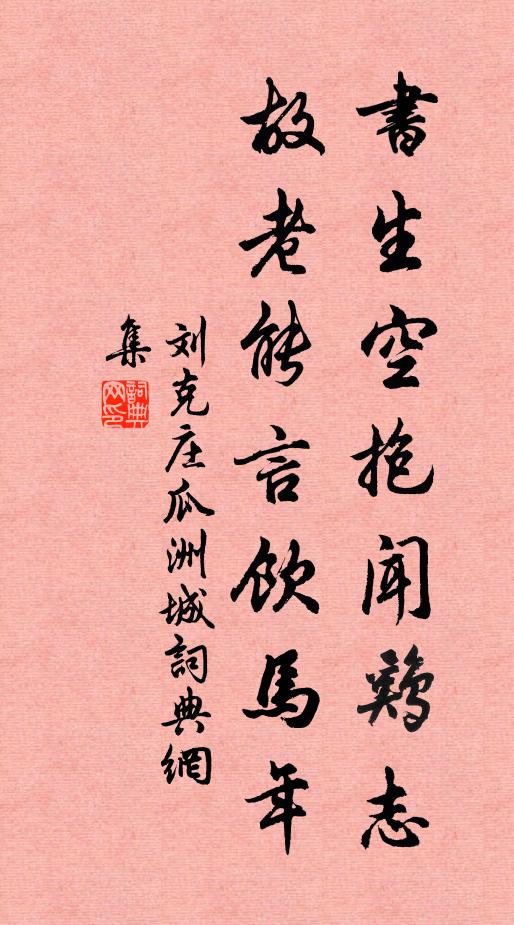 書生空抱聞鷄志
故老能言飲馬年
刘克庄瓜洲城詞典網
集
詞典
网印